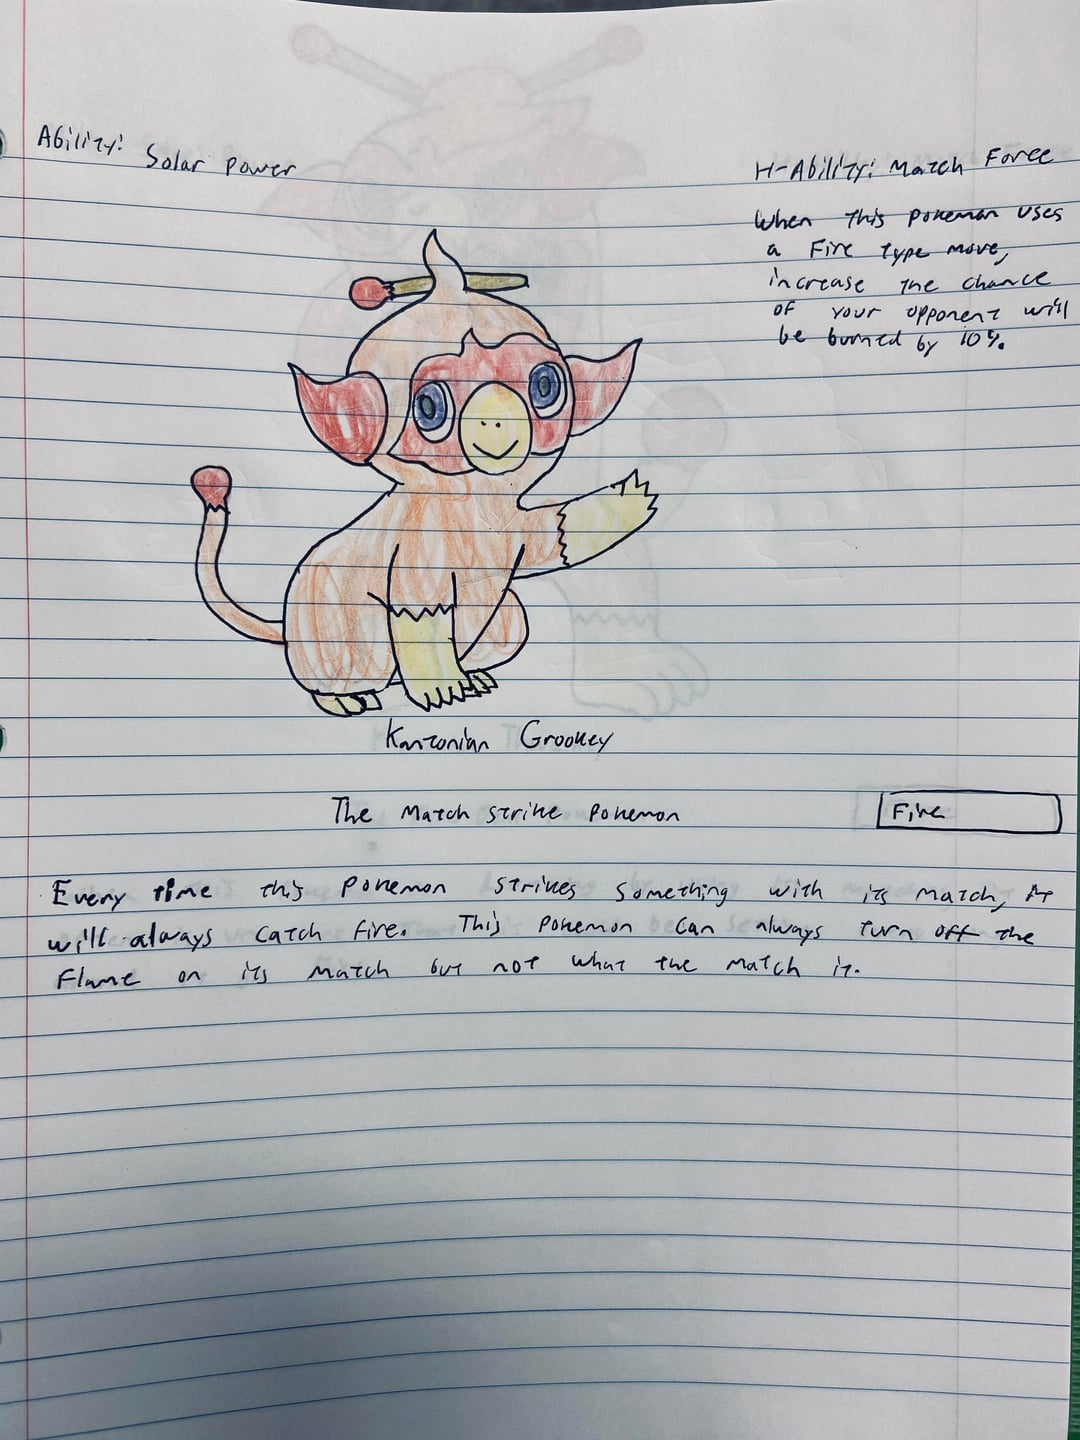 Ability: Solar Power
H-Ability: Match Force
When this pokemon uses
a Fire type move,
increase the chance
of your opponent will
be burned by 10%.
Kantonian Grookey
The Match strike pokemon
Fire
Every time this pokemon strikes something with its match, it
will always catch fire. This pokemon can always turn off the
flame on its match but not what the match lit.